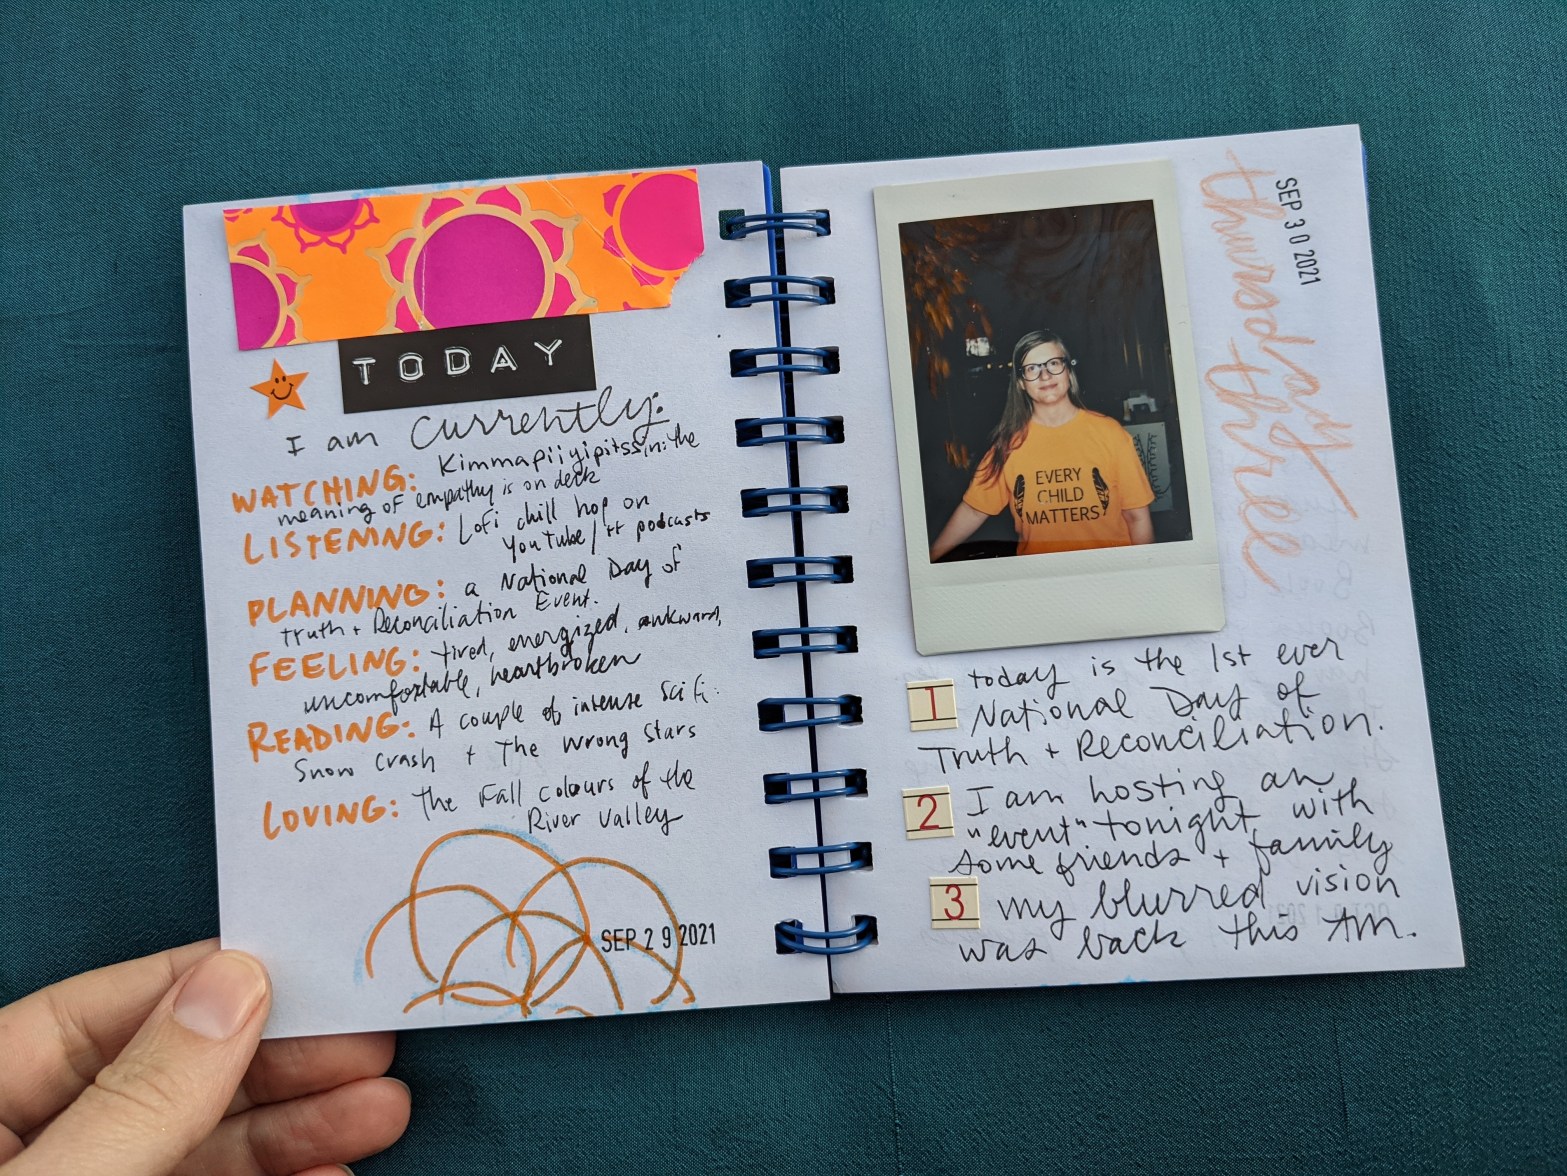 TODAY
I am currently:
WATCHING: Kimmapiiyipitssini: the
meaning of empathy is on deck
LISTENING: Lofi chill hop on
YouTube / tt podcasts
PLANNING: a National Day of
Truth + Reconciliation Event.
FEELING: tired, energized, awkward,
uncomfortable, heartbroken
READING: A couple of intense Sci fi:
Snow Crash + The Wrong Stars
LOVING: the Fall colours of the
River Valley
SEP 29 2021
SEP 30 2021
thursday three
EVERY
CHILD
MATTERS
1 today is the 1st ever
National Day of
Truth + Reconciliation.
2 I am hosting an
"event" tonight with
some friends + family
3 my blurred vision
was back this AM.